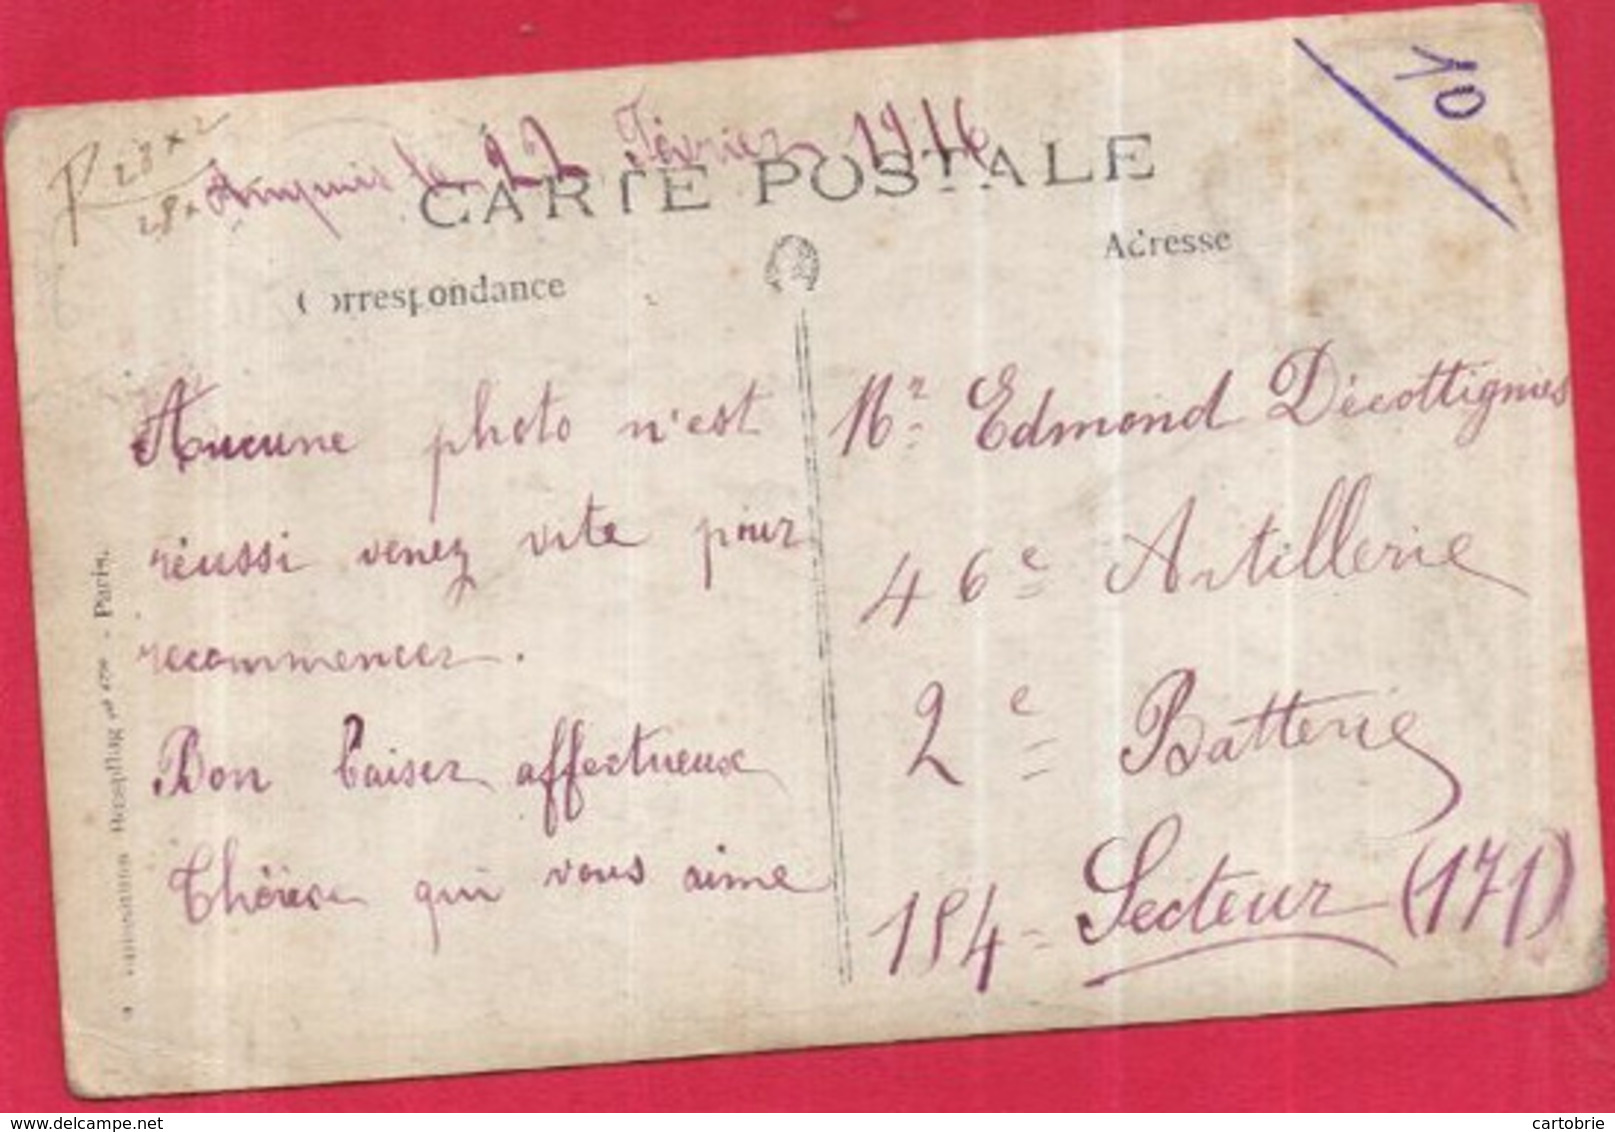 le 22 Février 1916
CARTE POSTALE
Correspondance
Adresse
10
Aucune photo n'est
réussi venez vite pour
recommencer.
Bon baiser affectueux
qui vous aime
Mr Edmond Décottignies
46e Artillerie
2e Batterie
154 Secteur (171)
Paris.
cartobrie